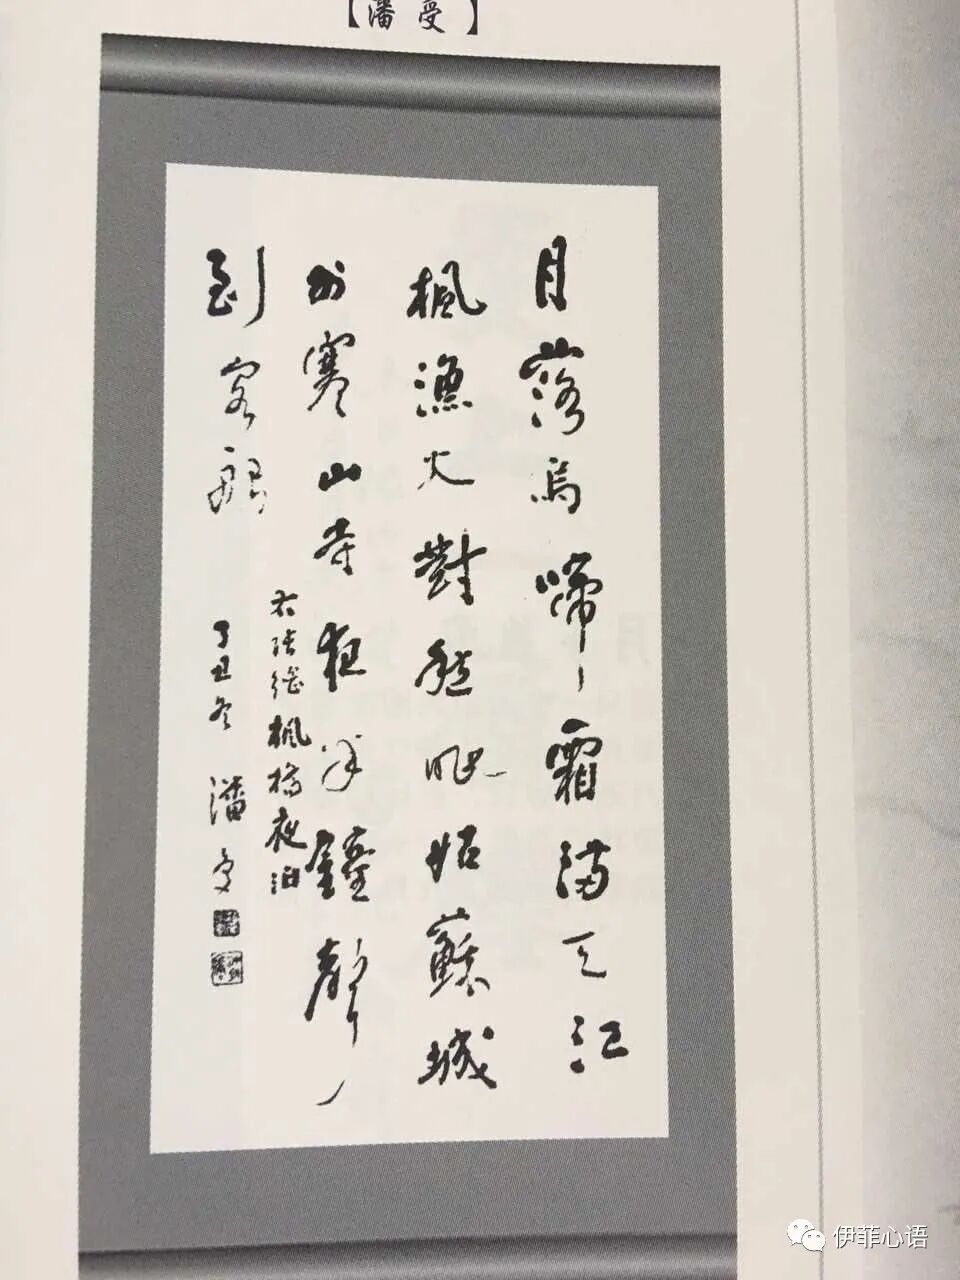 【潘受】
月落烏啼霜滿天江
楓漁火對愁眠姑蘇城
外寒山寺夜半鐘聲
到客船
右張繼楓橋夜泊
丁丑冬 潘受
伊菲心语